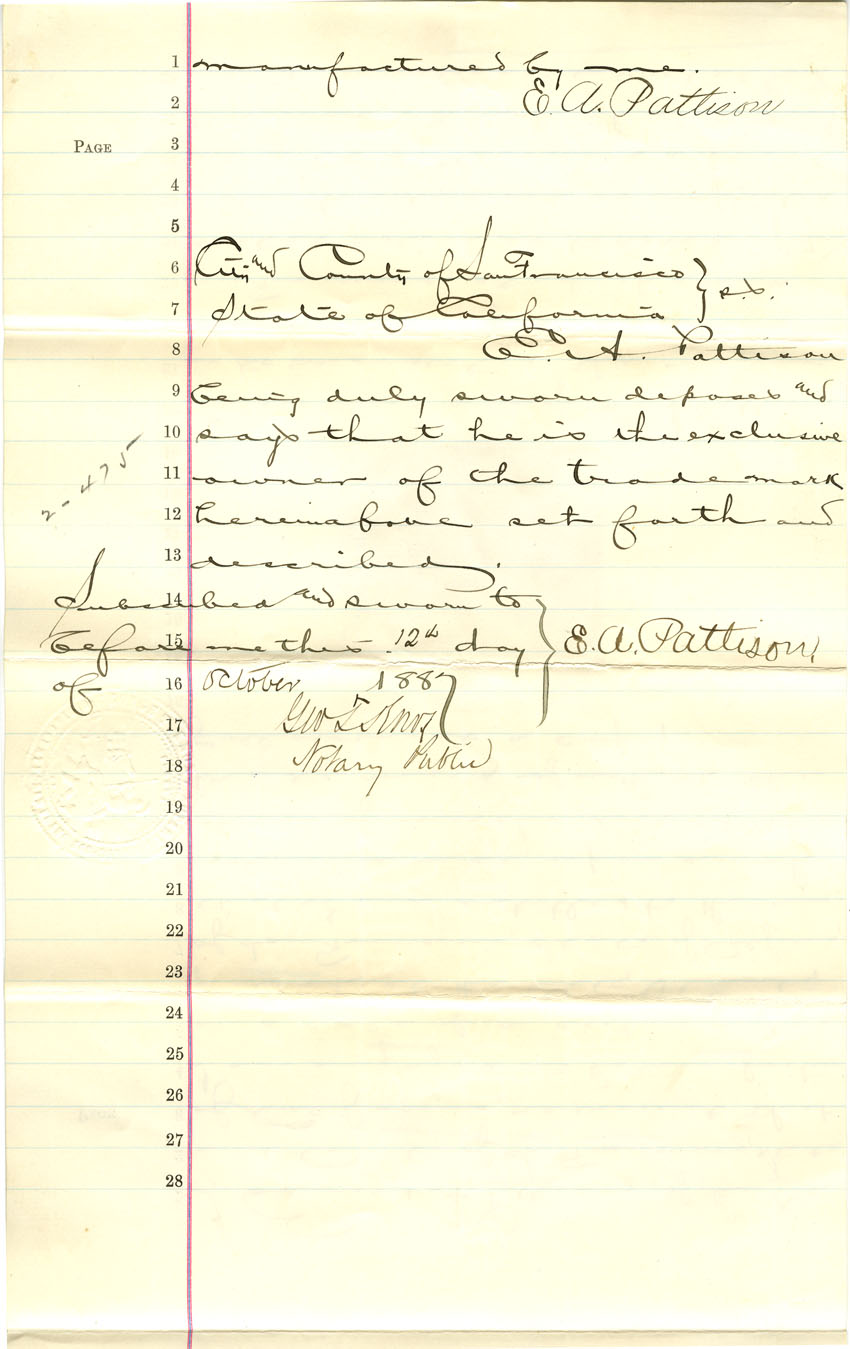 1 manufactured by me.
2 E. A. Pattison
PAGE 3
4
5
6 City and County of San Francisco } s.s.
7 State of California
8 E. A. Pattison
9 being duly sworn deposes and
10 says that he is the exclusive
11 owner of the trade mark
2-475
12 hereinabove set forth and
13 described.
14 Subscribed and sworn to
15 before me this 12th day } E. A. Pattison,
16 of October 1887
17 Geo T Knox
18 Notary Public
19
20
21
22
23
24
25
26
27
28